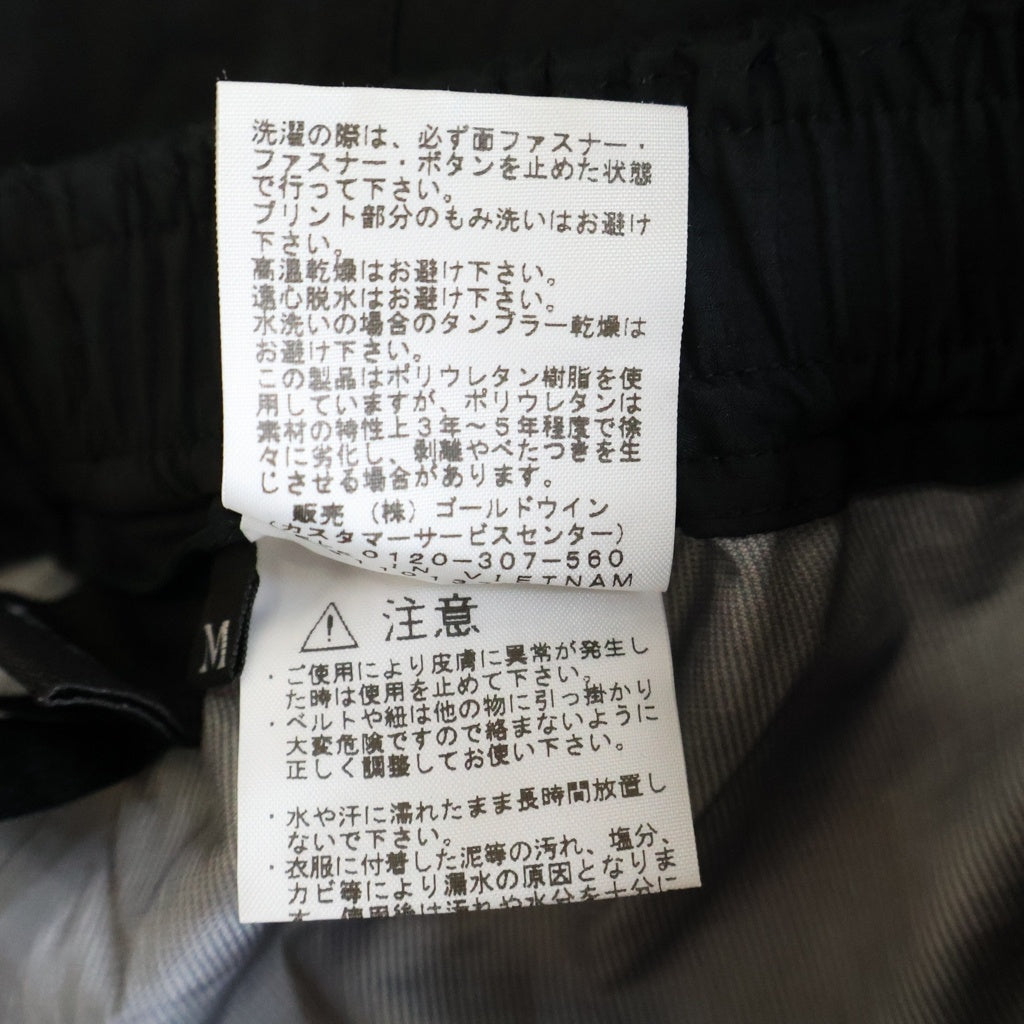 洗濯の際は、必ず面ファスナー・
ファスナー・ボタンを止めた状態
で行って下さい。
プリント部分のもみ洗いはお避け
下さい。
高温乾燥はお避け下さい。
遠心脱水はお避け下さい。
水洗いの場合のタンブラー乾燥は
お避け下さい。
この製品はポリウレタン樹脂を使
用していますが、ポリウレタンは
素材の特性上3年～5年程度で徐
々に劣化し、剥離やべたつきを生
じさせる場合があります。
販売 (株)ゴールドウイン
(カスタマーサービスセンター)
0120-307-560
IN VIETNAM
M
注意
・ご使用により皮膚に異常が発生し
た時は使用を止めて下さい。
・ベルトや紐は他の物に引っ掛かり
大変危険ですので絡まないように
正しく調整してお使い下さい。
・水や汗に濡れたまま長時間放置し
ないで下さい。
・衣服に付着した泥等の汚れ、塩分、
カビ等により漏水の原因となりま
す。使用後は汚れや水分を十分に